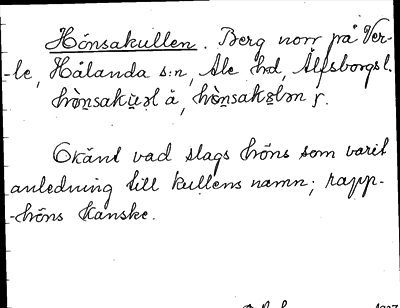 Hönsakullen. Berg norr på Ver-
-le, Hålanda s:n, Ale hd, Älfsborgs l.
hò̀nsakuəl å, hò̀nsakələn ʃ.
Okänt vad slags höns som varit
anledning till kullens namn; rapp-
-höns kanske.